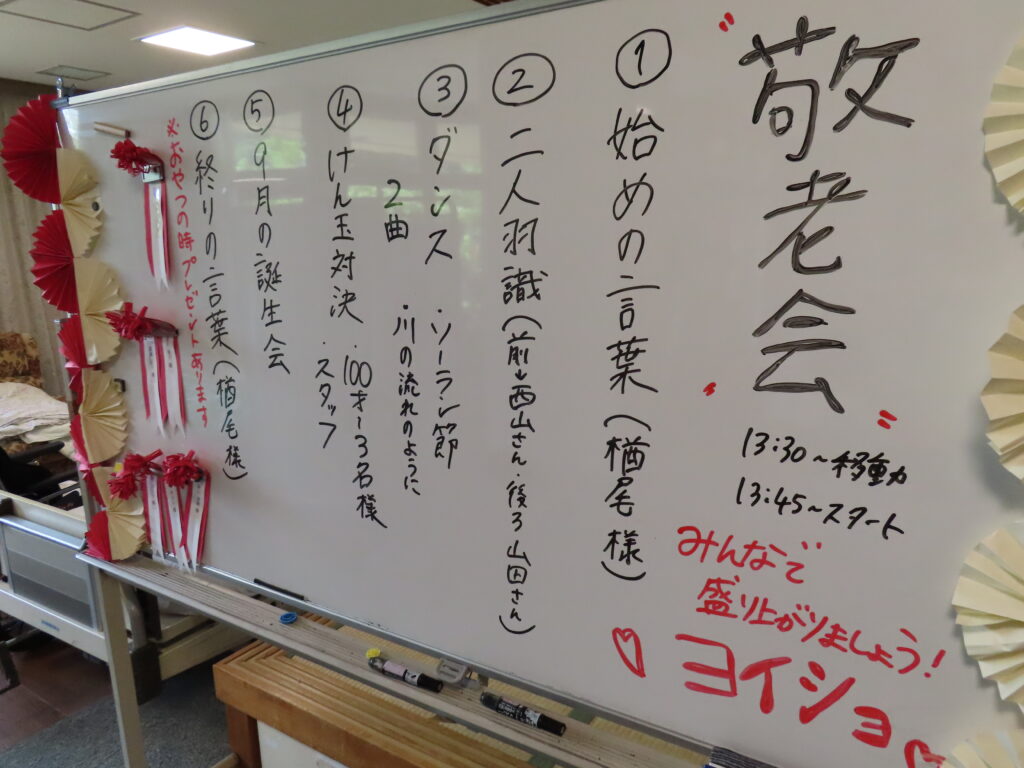 "敬老会"
13:30～移動
13:45～スタート
みんなで
盛り上がりましょう!
ヨイショ
① 始めの言葉(楢尾様)
② 二人羽識(前→西山さん・後ろ山田さん)
③ ダンス ・ソーラン節
2曲 ・川の流れのように
④ けん玉対決 ・100才～3名様
・スタッフ
⑤ 9月の誕生会
⑥ 終りの言葉(楢尾様)
※おやつの時プレゼントあります